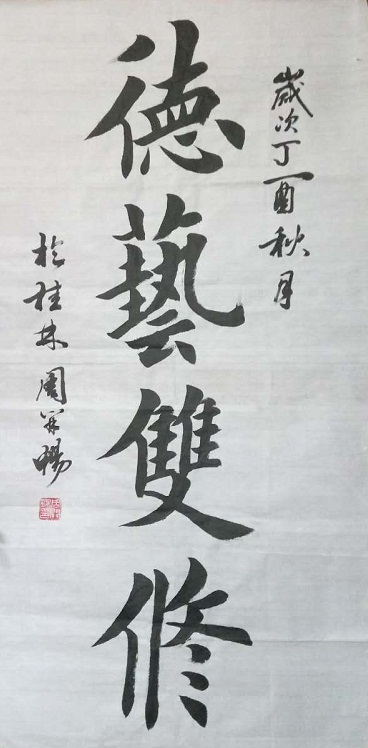 歲次丁酉秋月
德藝雙修
於桂林周笔暢